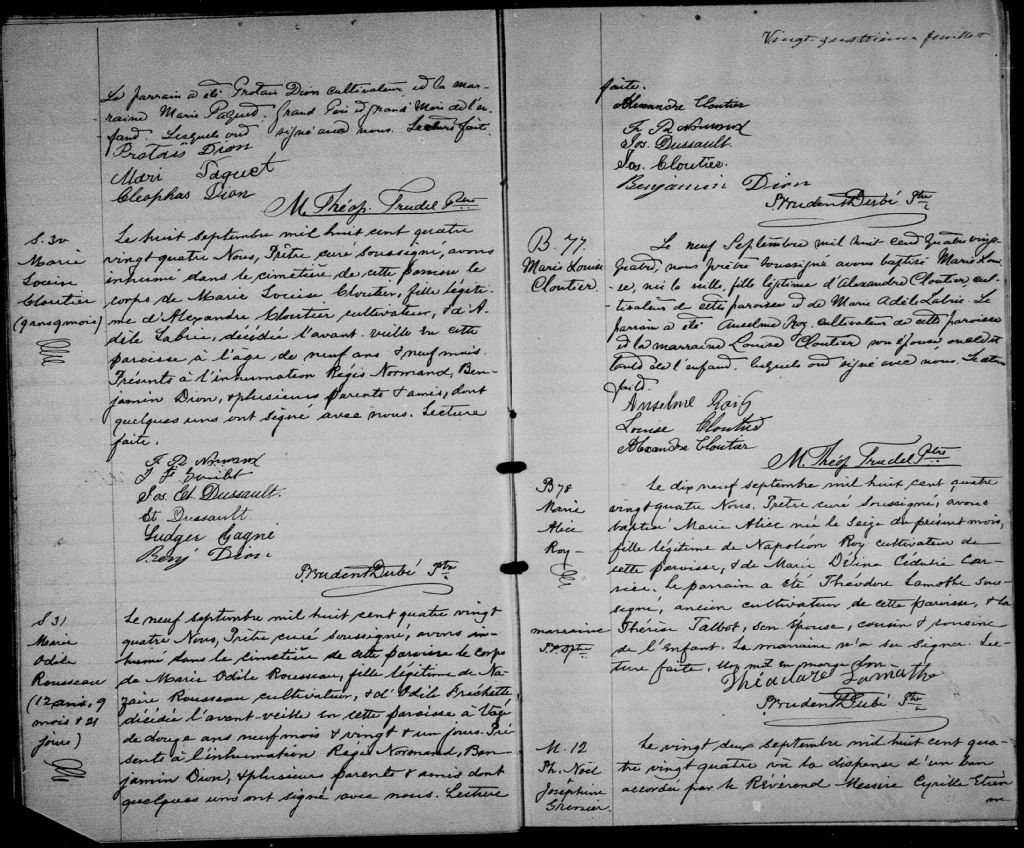 Le parrain a été Protais Dion cultivateur, et la mar-
raine Marie Paquet, Grand Père et grand' Mère de l'en-
fant. Lesquels ont signé avec nous. Lecture faite.
Protais Dion
Mari Paquet
Cleophas Dion
M. Théop. Trudel Ptre
S. 30
Marie
Louise
Cloutier
(9 ans 9 mois)
Le huit septembre mil huit cent quatre
vingt quatre Nous, Prêtre curé soussigné, avons
inhumé dans le cimetière de cette paroisse le
corps de Marie Louise Cloutier, fille légiti-
me d'Alexandre Cloutier cultivateur, & d'A-
dèle Labrie, décédée l'avant-veille en cette
paroisse à l'âge de neuf ans & neuf mois.
Présents à l'inhumation Régis Normand, Ben-
jamin Dion, & plusieurs parents & amis, dont
quelques uns ont signé avec nous. Lecture
faite.
F. R. Normand
Jos. Et. Dussault.
Et Dussault
Ludger Gagné
Benj Dion
Prudent Dubé Ptre
S 31
Marie
Odile
Rousseau
(12 ans, 9
mois & 21
jours)
Le neuf septembre mil huit cent quatre vingt
quatre Nous, Prêtre curé soussigné, avons in-
humé dans le cimetière de cette paroisse le corps
de Marie Odile Rousseau, fille légitime de Na-
zaire Rousseau cultivateur, & d'Odile Fréchette
décédée l'avant-veille en cette paroisse à l'âge
de douze ans neuf mois & vingt & un jours. Pré-
sents à l'inhumation Régis Normand, Ben-
jamin Dion, & plusieurs parents & amis dont
quelques uns ont signé avec nous. Lecture
Vingt quatrième feuillet
faite.
Alexandre Cloutier
F. R. Normand
Jos. Dussault.
Jos. Cloutier.
Benjamin Dion
Prudent Dubé Ptre
B. 77.
Marie Louise
Cloutier.
Le neuf Septembre mil huit cent quatre vingt
quatre, nous prêtre soussigné avons baptisé Marie Loui-
se, née la veille, fille légitime d'Alexandre Cloutier cul-
tivateur de cette paroisse et de Marie Adèle Labrie. Le
parrain a été Anselme Roy, cultivateur de cette paroisse
et la marraine Louise Cloutier son épouse oncle et
tante de l'enfant. Lesquels ont signé avec nous. Lecture
faite.
Anselme
Louise Cloutier
Alexandre Cloutier
M. Théop Trudel Ptre
B 78
Marie
Alice
Roy
Le dix neuf septembre mil huit cent quatre
vingt quatre Nous, Prêtre curé soussigné, avons
baptisé Marie Alice née le seize du présent mois,
fille légitime de Napoléon Roy cultivateur de
cette paroisse, & de Marie Délina Cédulie
Le parrain a été Théodore Lamothe sous-
signé, ancien cultivateur de cette paroisse, & la
marraine
P.D. Ptre
Thérèse Talbot, son épouse, cousin & cousine
de l'Enfant. La marraine n'a su signer. Lec-
ture faite. Un mot en marge bon.
Théodore Lamothe
Prudent Dubé Ptre
M. 12
Ph. Noël
Joséphine
Grenier.
Le vingt deux septembre mil huit cent qua-
tre vingt quatre vu la dispense d'un ban
accordée par le Révérend Messire Cyrille Etien
ne